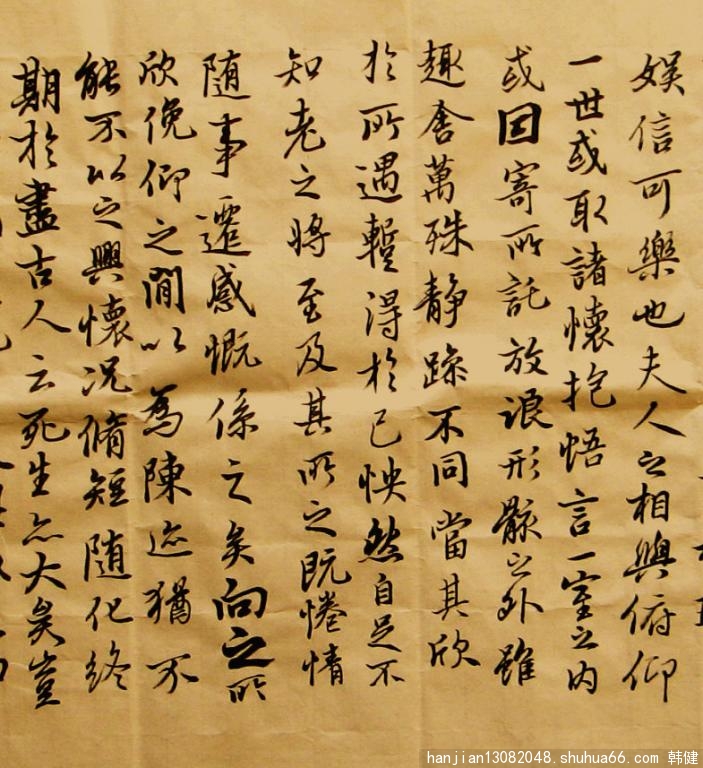 娱信可樂也夫人之相與俯仰
一世或取諸懷抱悟言一室之内
或因寄所託放浪形骸之外雖
趣舍萬殊静躁不同當其欣
於所遇暫得於己怏然自足不
知老之將至及其所之既惓情
随事遷感慨係之矣向之所
欣俛仰之間以為陳迹猶不
能不以之興懷况脩短随化終
期於盡古人云死生亦大矣豈
hanjian13082048.shuhua66.com 韩健